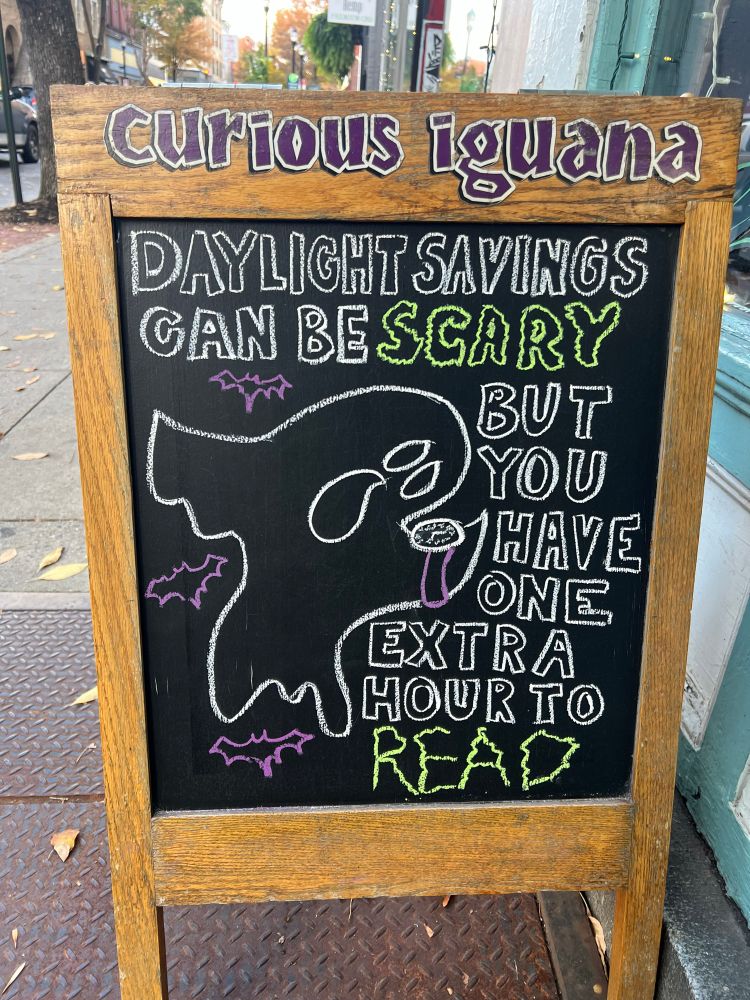 curious iguana
DAYLIGHT SAVINGS
CAN BE SCARY
BUT
YOU
HAVE
ONE
EXTRA
HOUR TO
READ